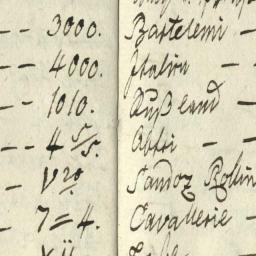 -- 3000. Bartelemi -
-- 4000. Italien --
- 1010. Rußland -
-- 4 5/5. Affri --
- V20. Sandoz Rollin
- 7=4. Cavallerie -